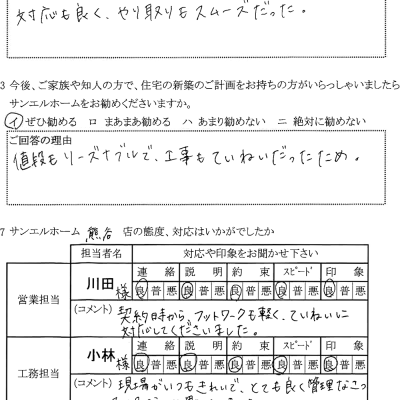 対応も良く、やり取りもスムーズだった。
3 今後、ご家族や知人の方で、住宅の新築のご計画をお持ちの方がいらっしゃいましたら
サンエルホームをお勧めくださいますか。
イ ぜひ勧める ロ まあまあ勧める ハ あまり勧めない ニ 絶対に勧めない
ご回答の理由
値段もリーズナブルで、工事もていねいだったため。
7 サンエルホーム 熊谷 店の態度、対応はいかがでしたか
担当者名 対応や印象をお聞かせ下さい
営業担当 川田様 連絡 説明 約束 スピード 印象
良 普 悪 良 普 悪 良 普 悪 良 普 悪 良 普 悪
(コメント) 契約時から、フットワークも軽く、ていねいに
対応してくださいました。
工務担当 小林様 連絡 説明 約束 スピード 印象
良 普 悪 良 普 悪 良 普 悪 良 普 悪 良 普 悪
(コメント) 現場がいつもきれいで、とても良く管理なさっ